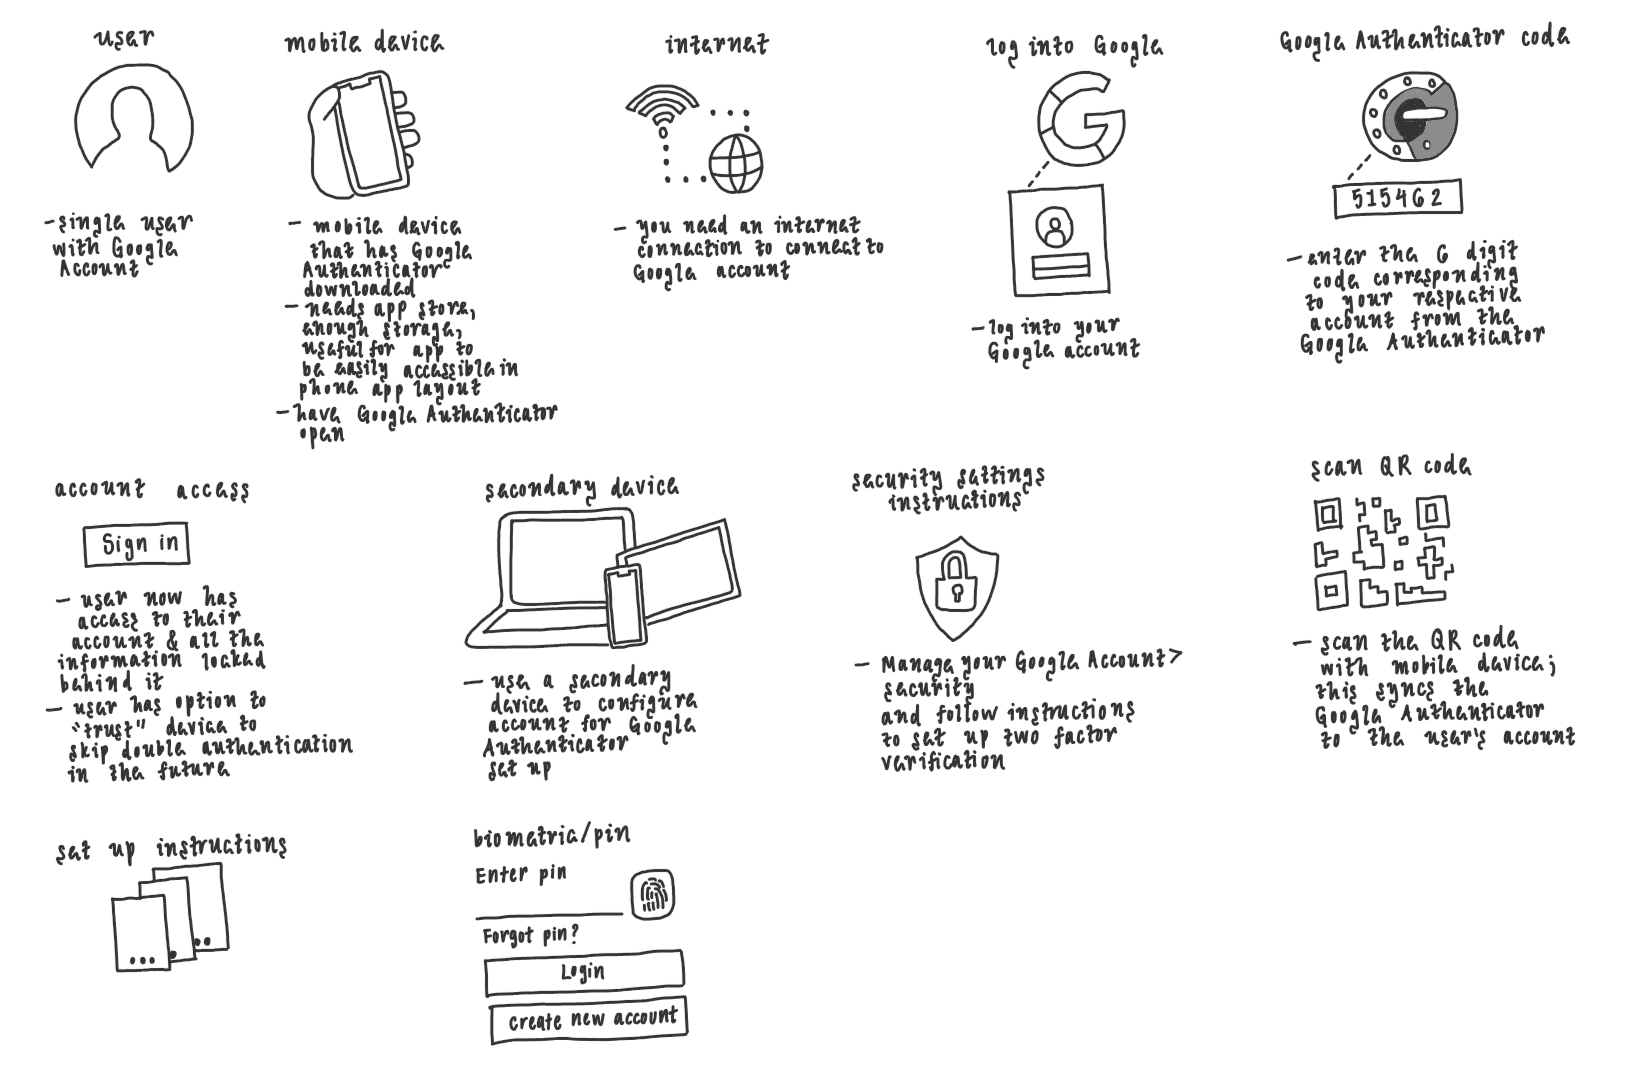 user
- single user
with Google
Account
mobile device
- mobile device
that has Google
Authenticator
downloaded
- needs app store,
enough storage,
useful for app to
be easily accessible in
phone app layout
- have Google Authenticator
open
internet
- you need an internet
connection to connect to
Google account
log into Google
G
- log into your
Google account
Google Authenticator code
515462
- enter the 6 digit
code corresponding
to your respective
account from the
Google Authenticator
account access
Sign in
- user now has
access to their
account & all the
information locked
behind it
- user has option to
"trust" device to
skip double authentication
in the future
secondary device
- use a secondary
device to configure
account for Google
Authenticator
set up
security settings
instructions
- Manage your Google Account >
security
and follow instructions
to set up two factor
verification
scan QR code
- scan the QR code
with mobile device;
this syncs the
Google Authenticator
to the user's account
set up instructions
biometric/pin
Enter pin
Forgot pin?
Login
create new account